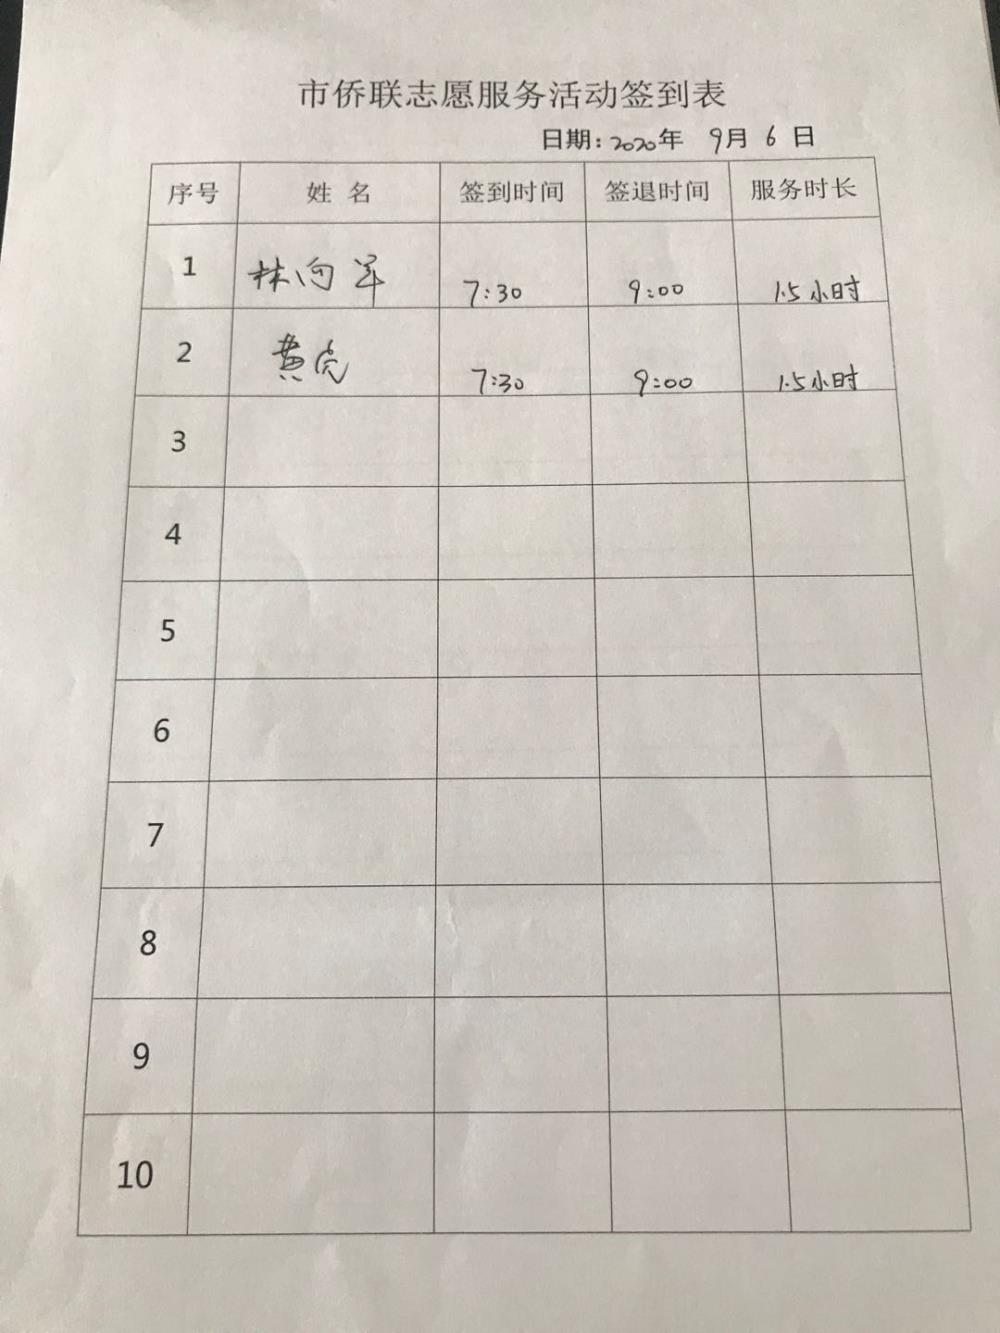 市侨联志愿服务活动签到表
日期: 2020年 9月 6 日
序号 姓名 签到时间 签退时间 服务时长
1 林向军 7:30 9:00 1.5小时
2 黄亮 7:30 9:00 1.5小时
3
4
5
6
7
8
9
10